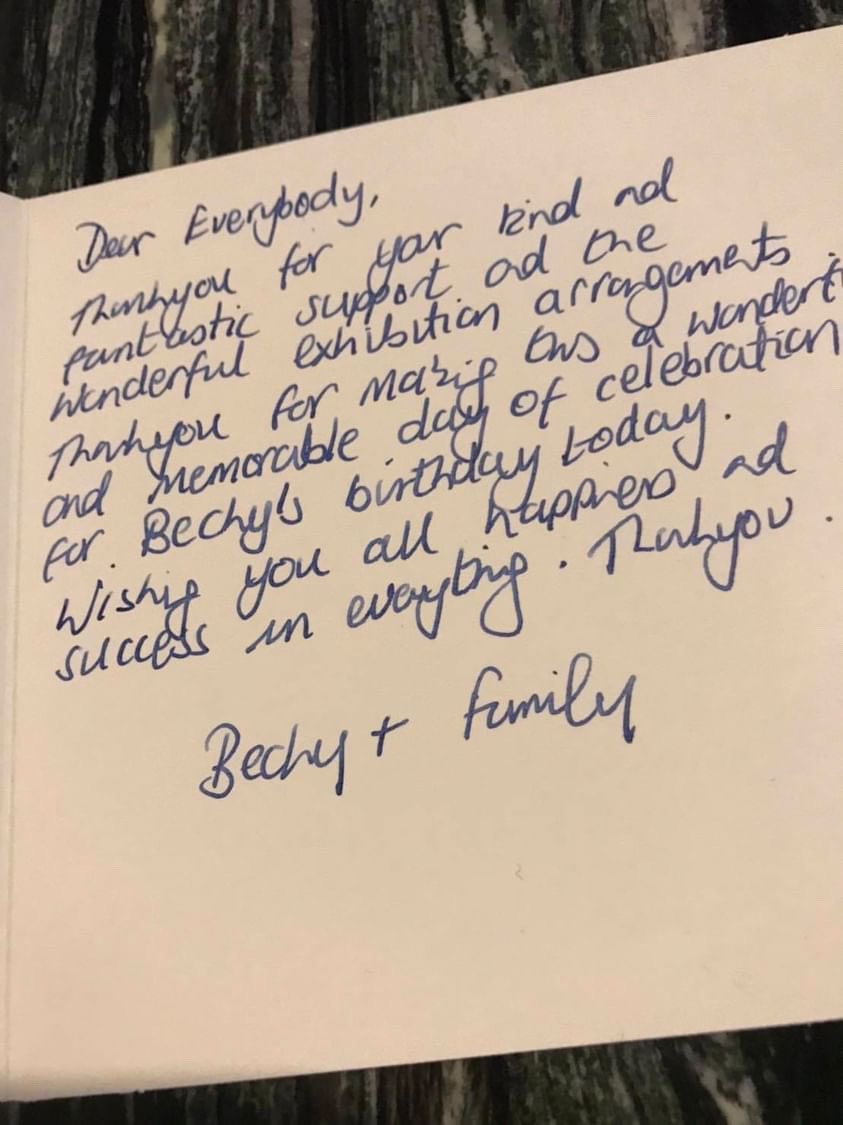 Dear Everybody,
Thankyou for your kind and
fantastic support and the
wonderful exhibition arrangements.
Thankyou for making this a wonderf
and memorable day of celebration
for Becky's birthday today.
Wishing you all happiness and
success in everything. Thankyou.
Becky + family